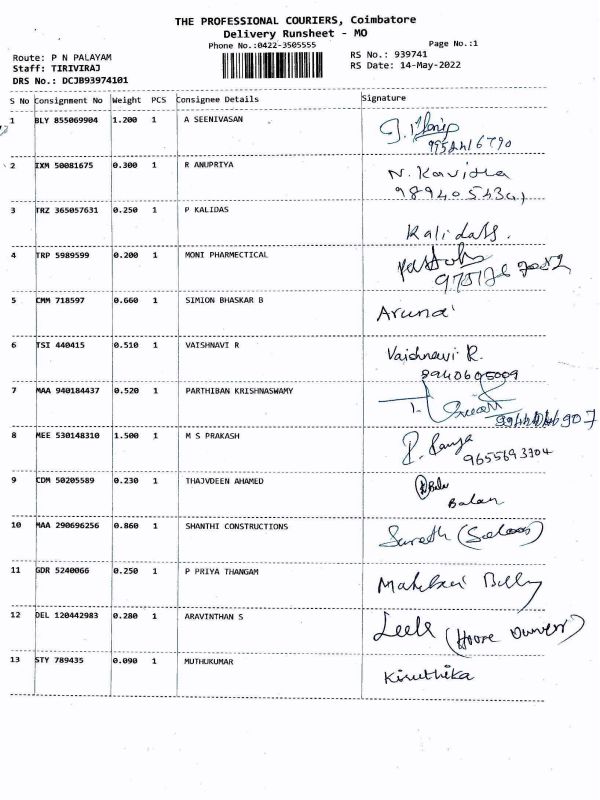 THE PROFESSIONAL COURIERS, Coimbatore
Delivery Runsheet - MO
Phone No.:0422-3505555 Page No.:1
Route: P N PALAYAM RS No.: 939741
Staff: TIRIVIRAJ RS Date: 14-May-2022
DRS No.: DCJB93974101
S No Consignment No Weight PCS Consignee Details Signature
1 BLY 855069904 1.200 1 A SEENIVASAN
2 IXM 50081675 0.300 1 R ANUPRIYA N. Kavitha
3 TRZ 365057631 0.250 1 P KALIDAS
Kalidass.
4 TRP 5989599 0.200 1 MONI PHARMECTICAL
5 CMM 718597 0.660 1 SIMION BHASKAR B Aruna
6 TSI 440415 0.510 1 VAISHNAVI R Vaishnavi R.
8940605009
7 MAA 940184437 0.520 1 PARTHIBAN KRISHNASWAMY
8 MEE 530148310 1.500 1 M S PRAKASH
9655693304
9 CDM 50205589 0.230 1 THAJVDEEN AHAMED Balu
Balan
10 MAA 290696256 0.860 1 SHANTHI CONSTRUCTIONS
11 GDR 5240066 0.250 1 P PRIYA THANGAM
12 DEL 120442983 0.280 1 ARAVINTHAN S
13 STY 789435 0.090 1 MUTHUKUMAR Kiruthika